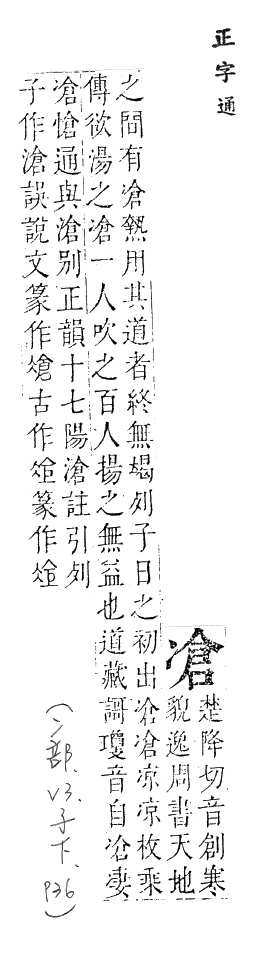 正字通
凔
楚降切音創寒
貌逸周書天地
之間有凔熱用其道者終無竭列子日之初出凔凔凉凉枚乗
傳欲湯之凔一人吹之百人揚之無益也道藏謌瓊音自凔凄
凔愴通與滄別正韻十七陽滄註引列
子作滄誤說文篆作古作篆作
(冫部.V3.子下.P36)